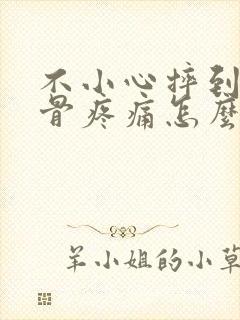 不小心摔到
骨疼痛怎麼
羊小姐的小草